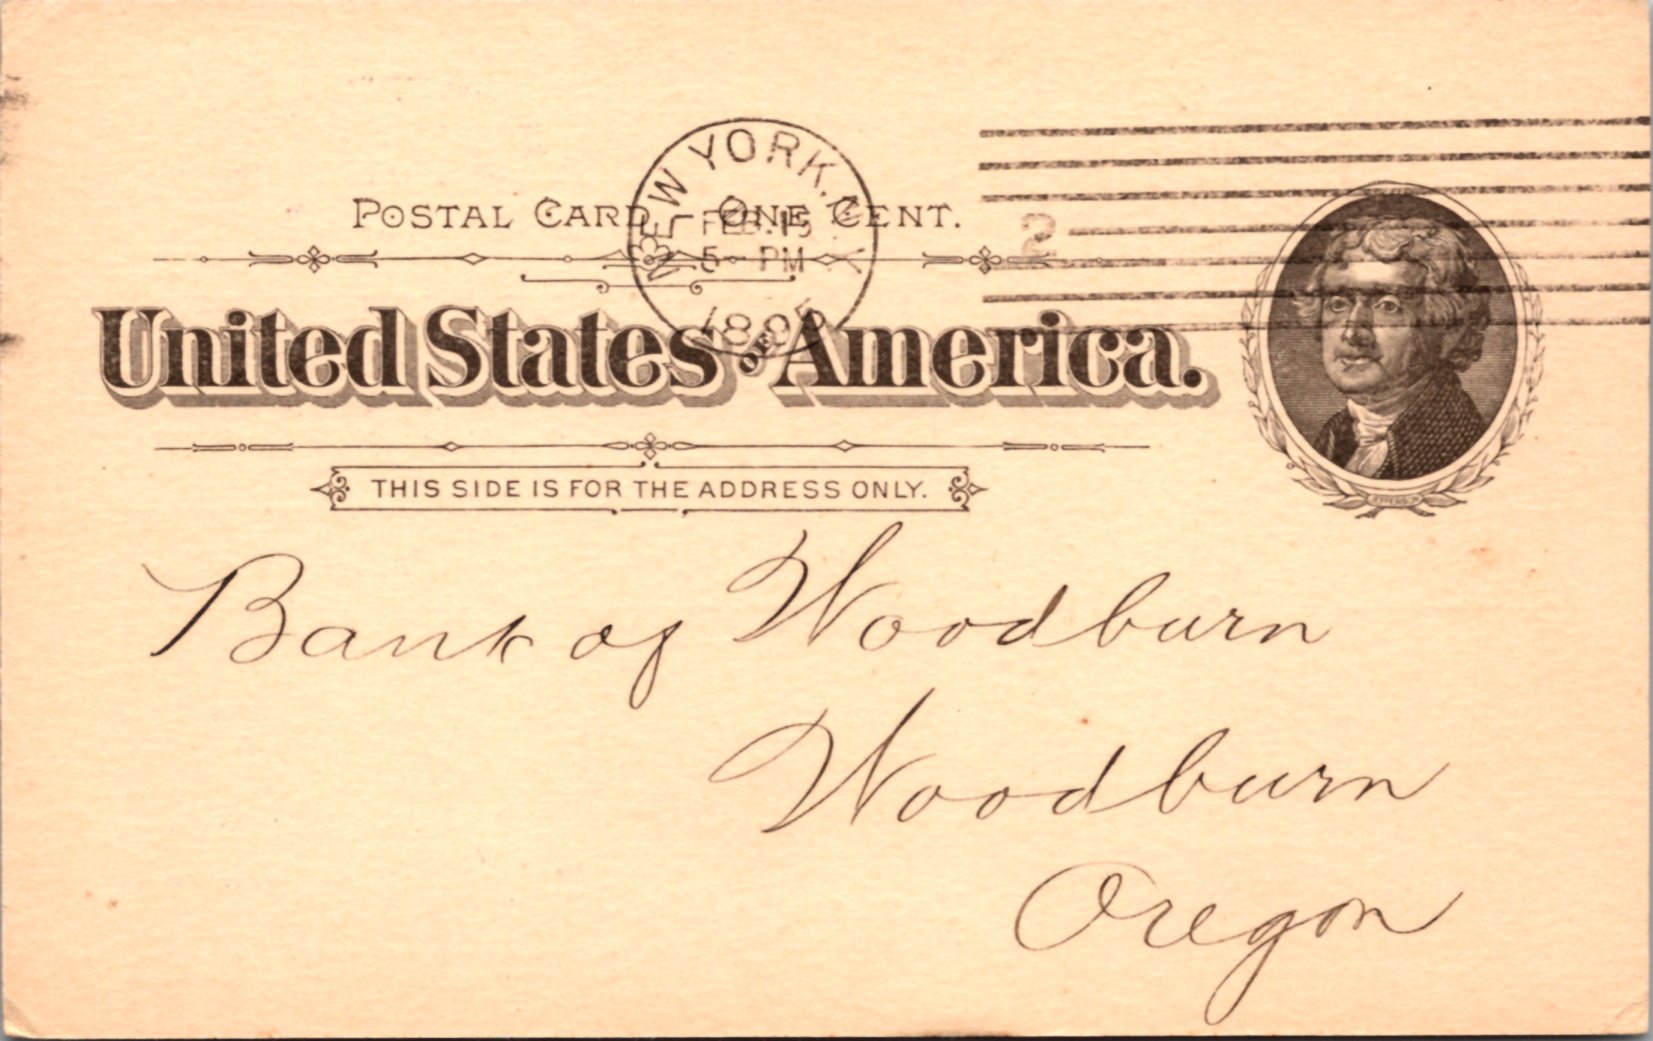 POSTAL CARD, ONE CENT.
NEW YORK, N.Y.
FEB. 15
5- PM
1895
2
United States OF America.
JEFFERSON
THIS SIDE IS FOR THE ADDRESS ONLY.
Bank of Woodburn
Woodburn
Oregon